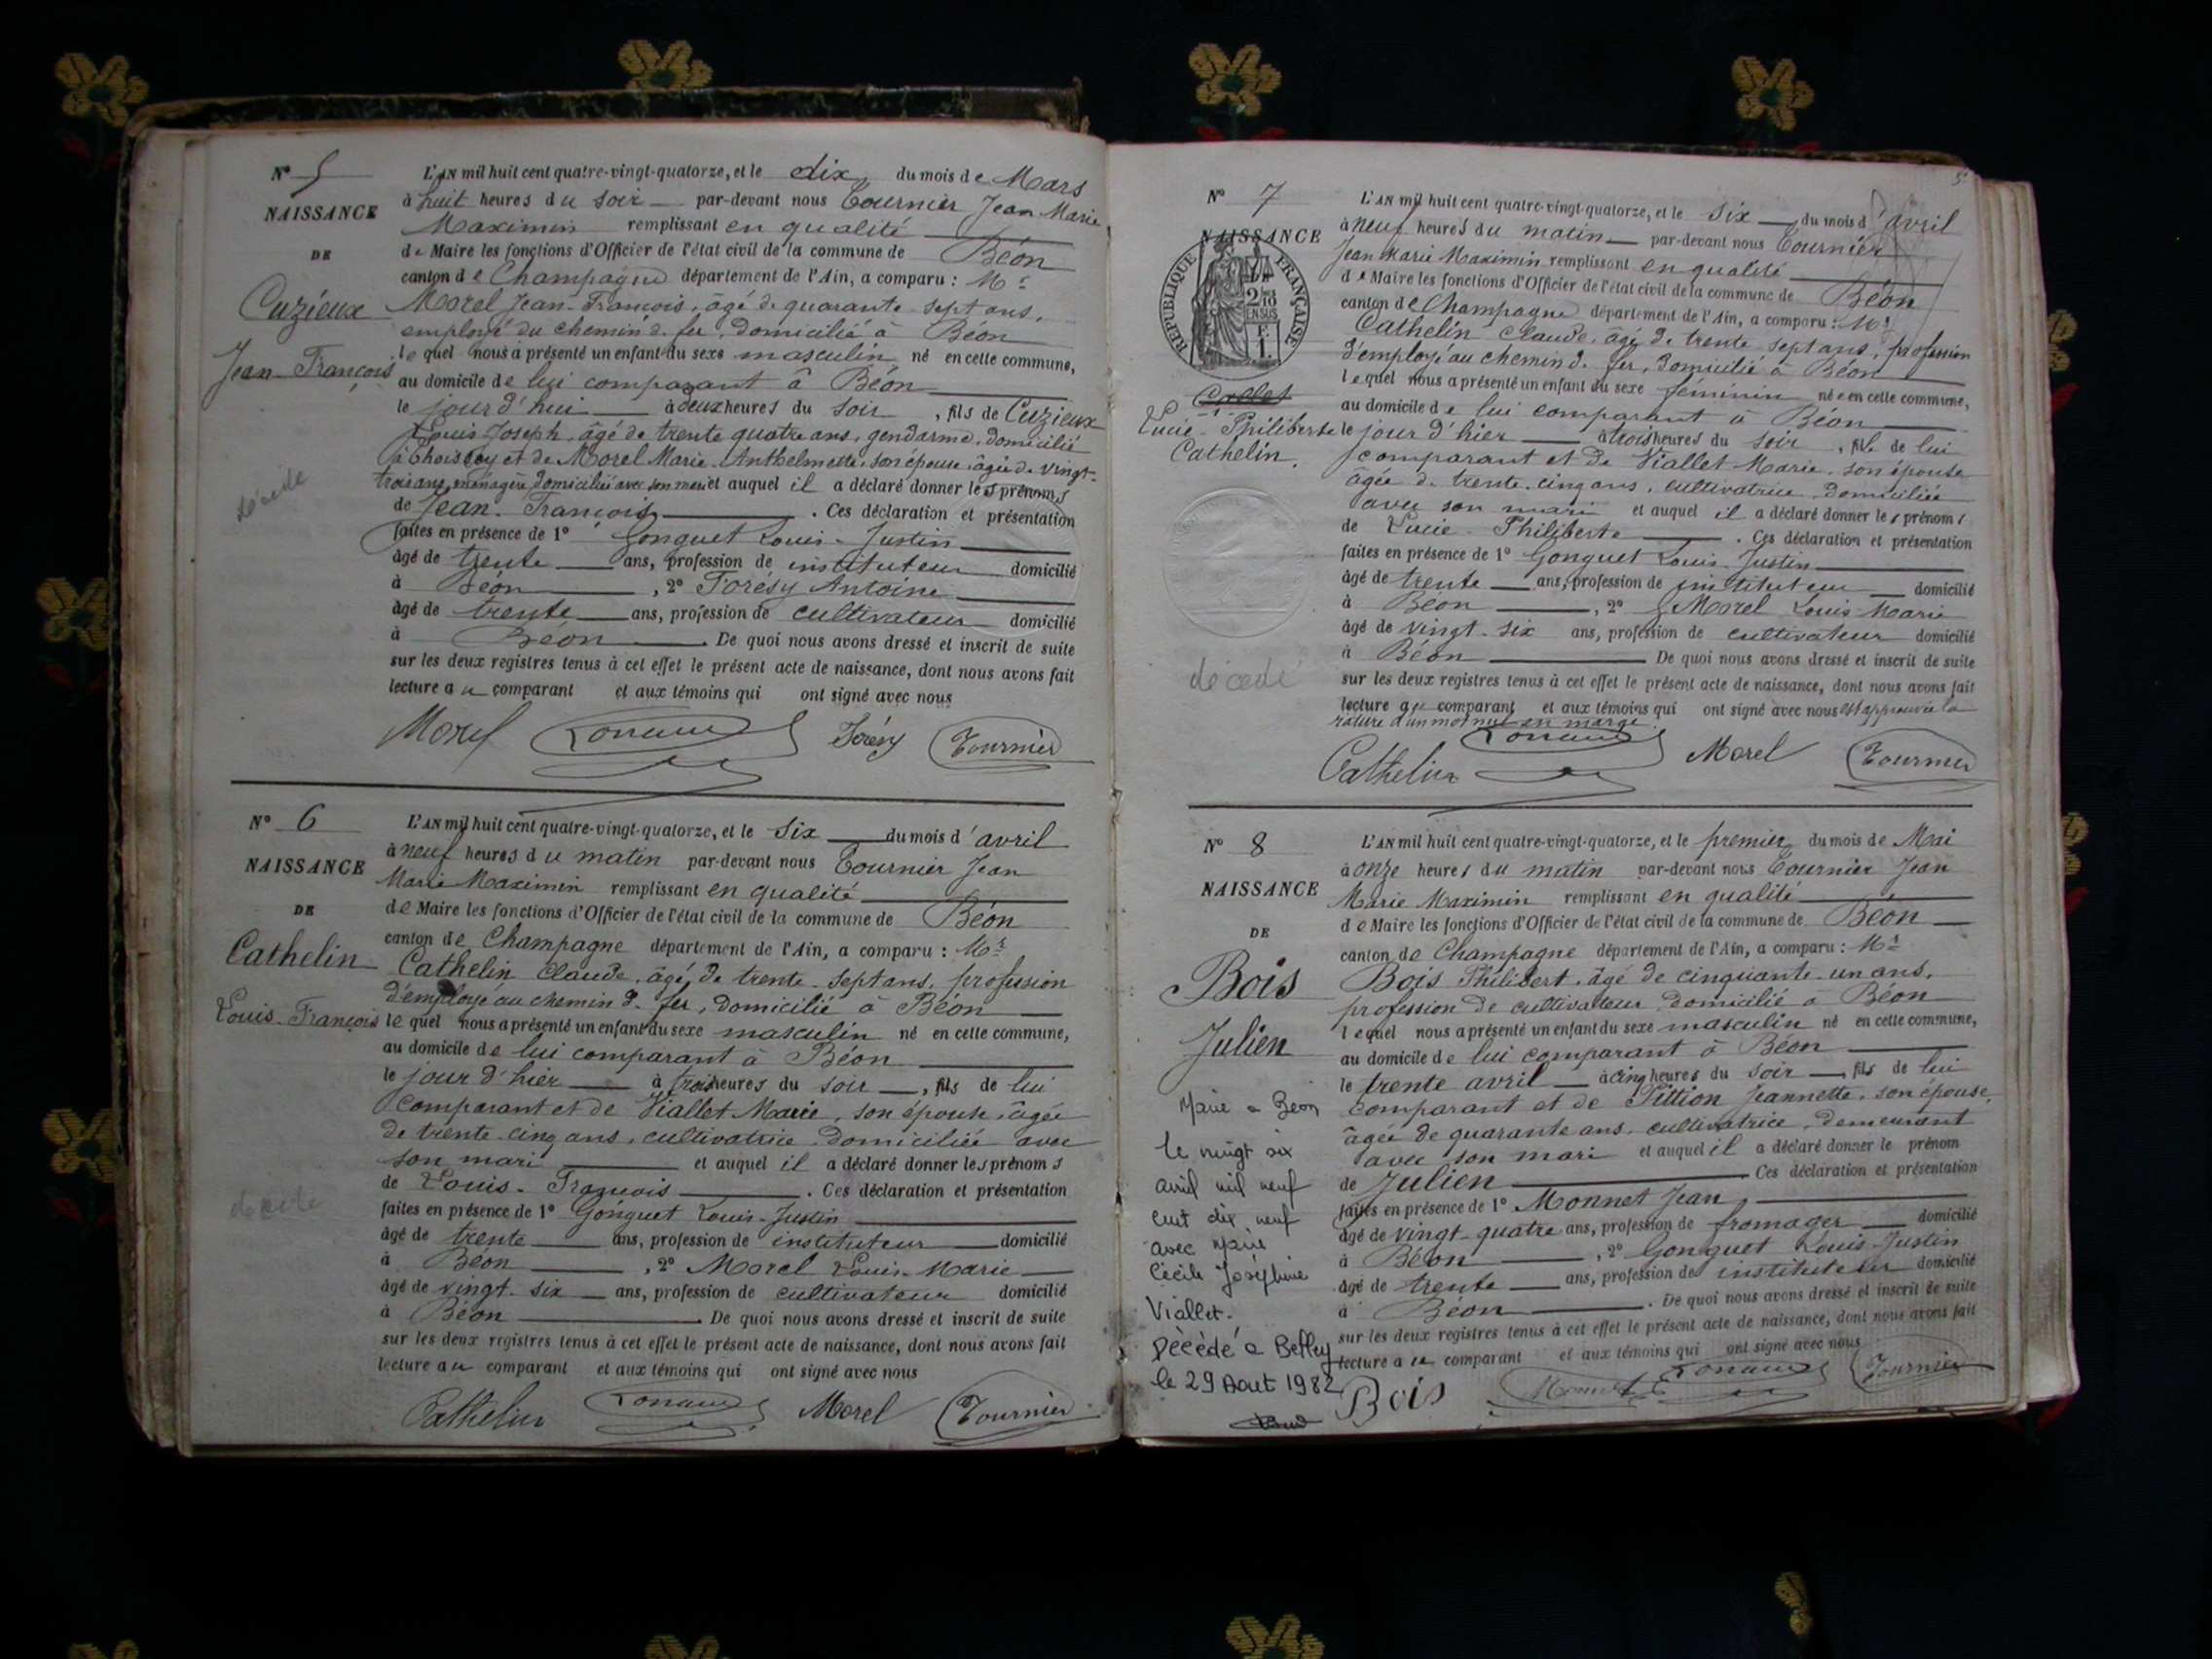 N° 5
NAISSANCE
DE
Cuzieux
Jean-François
décédé
L'AN mil huit cent quatre-vingt-quatorze, et le dix du mois de Mars
à huit heures du soir par-devant nous Tournier Jean Marie
Maximin remplissant en qualité
de Maire les fonctions d'Officier de l'état civil de la commune de Béon
canton de Champagne département de l'Ain, a comparu : Mr
Morel Jean-François, âgé de quarante-sept ans,
employé du chemin de fer, domicilié à Béon
lequel nous a présenté un enfant du sexe masculin né en cette commune,
au domicile de lui comparant à Béon
le jour d'hui à deux heures du soir, fils de Cuzieux
Louis Joseph, âgé de trente quatre ans, gendarme, domicilié
à et de Morel Marie-Anthelmette, son épouse, âgée de vingt-
trois ans, ménagère, domiciliée avec son mari et auquel il a déclaré donner les prénoms
de Jean-François. Ces déclaration et présentation
faites en présence de 1° Gonguet Louis-Justin
âgé de trente ans, profession de instituteur domicilié
à Béon, 2° Forésy Antoine
âgé de trente ans, profession de cultivateur domicilié
à Béon. De quoi nous avons dressé et inscrit de suite
sur les deux registres tenus à cet effet le présent acte de naissance, dont nous avons fait
lecture au comparant et aux témoins qui ont signé avec nous
Morel Forésy Tournier
N° 6
NAISSANCE
DE
Cathelin
Louis-François
décédé
L'AN mil huit cent quatre-vingt-quatorze, et le six du mois d'avril
à neuf heures du matin par-devant nous Tournier Jean
Marie Maximin remplissant en qualité
de Maire les fonctions d'Officier de l'état civil de la commune de Béon
canton de Champagne département de l'Ain, a comparu : Mr
Cathelin Claude, âgé de trente-sept ans, profession
d'employé au chemin de fer, domicilié à Béon
lequel nous a présenté un enfant du sexe masculin né en cette commune,
au domicile de lui comparant à Béon
le jour d'hier à trois heures du soir, fils de lui
comparant et de Viallet Marie, son épouse, âgée
de trente-cinq ans, cultivatrice, domiciliée avec
son mari et auquel il a déclaré donner les prénoms
de Louis-François. Ces déclaration et présentation
faites en présence de 1° Gonguet Louis-Justin
âgé de trente ans, profession de instituteur domicilié
à Béon, 2° Morel Louis-Marie
âgé de vingt-six ans, profession de cultivateur domicilié
à Béon. De quoi nous avons dressé et inscrit de suite
sur les deux registres tenus à cet effet le présent acte de naissance, dont nous avons fait
lecture au comparant et aux témoins qui ont signé avec nous
Cathelin Morel Tournier
5
N° 7
NAISSANCE
DE
REPUBLIQUE FRANÇAISE
2/10 EN SUS
F. 1.
Lucie-Philiberte
Cathelin.
décédé
L'AN mil huit cent quatre-vingt-quatorze, et le six du mois d'avril
à neuf heures du matin par-devant nous Tournier
Jean Marie Maximin remplissant en qualité
de Maire les fonctions d'Officier de l'état civil de la commune de Béon
canton de Champagne département de l'Ain, a comparu : Mr
Cathelin Claude, âgé de trente-sept ans, profession
d'employé au chemin de fer, domicilié à Béon
lequel nous a présenté un enfant du sexe féminin née en cette commune,
au domicile de lui comparant à Béon
le jour d'hier à trois heures du soir, fille de lui
comparant et de Viallet Marie, son épouse
âgée de trente-cinq ans, cultivatrice, domiciliée
avec son mari et auquel il a déclaré donner les prénoms
de Lucie-Philiberte. Ces déclaration et présentation
faites en présence de 1° Gonguet Louis-Justin
âgé de trente ans, profession de instituteur domicilié
à Béon, 2° Morel Louis-Marie
âgé de vingt-six ans, profession de cultivateur domicilié
à Béon De quoi nous avons dressé et inscrit de suite
sur les deux registres tenus à cet effet le présent acte de naissance, dont nous avons fait
lecture au comparant et aux témoins qui ont signé avec nous est approuvée la
rature d'un mot nul en marge.
Cathelin Morel Tournier
N° 8
NAISSANCE
DE
Bois
Julien
Marié à Béon
le vingt six
avril mil neuf
cent dix neuf
avec Marie
Cécile Joséphine
Viallet.
Décédé à Belley
le 29 Aout 1982
L'AN mil huit cent quatre-vingt-quatorze, et le premier du mois de Mai
à onze heures du matin par-devant nous Tournier Jean
Marie Maximin remplissant en qualité
de Maire les fonctions d'Officier de l'état civil de la commune de Béon
canton de Champagne département de l'Ain, a comparu : Mr
Bois Philibert, âgé de cinquante-un ans,
profession de cultivateur domicilié à Béon
lequel nous a présenté un enfant du sexe masculin né en cette commune,
au domicile de lui comparant à Béon
le trente avril à cinq heures du soir, fils de lui
comparant et de Pittion Jeannette, son épouse,
âgée de quarante ans, cultivatrice, demeurant
avec son mari et auquel il a déclaré donner le prénom
de Julien Ces déclaration et présentation
faites en présence de 1° Monnet Jean
âgé de vingt-quatre ans, profession de fromager domicilié
à Béon, 2° Gonguet Louis-Justin
âgé de trente ans, profession de instituteur domicilié
à Béon. De quoi nous avons dressé et inscrit de suite
sur les deux registres tenus à cet effet le présent acte de naissance, dont nous avons fait
lecture au comparant et aux témoins qui ont signé avec nous
Bois Monnet Tournier